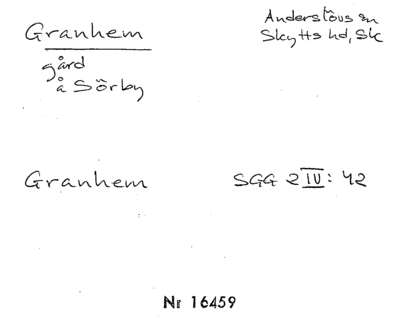 Granhem
Anderslövs sn
Skytts hd, Sk
gård
å Sörby
Granhem
SGG 2 IV: 42
Nr 16459